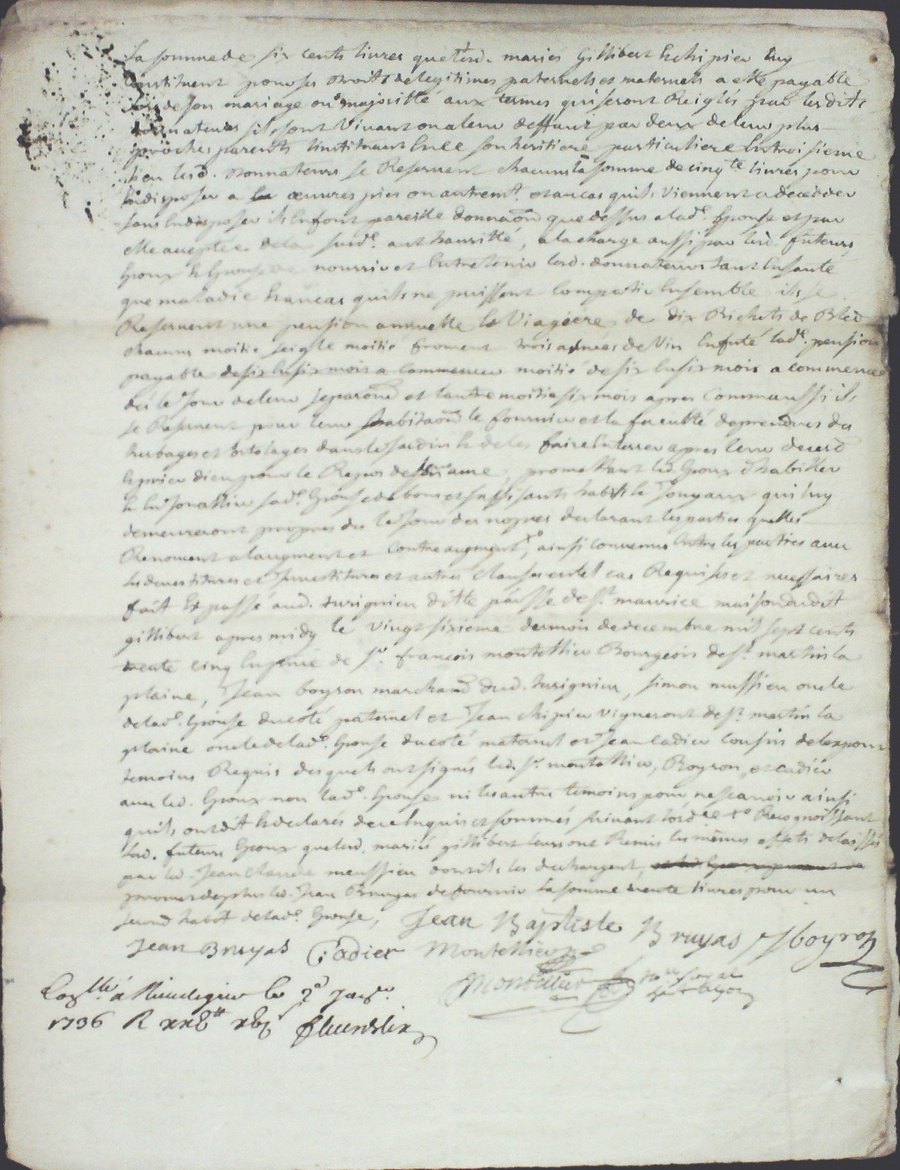 La somme de six cents livres que lesd. mariés Gillibert & chipier luy
constituent pour ses droits de legitimes paternels et maternels a elle payable
de son mariage ou majoritté aux termes qui seront Reiglés par lesdits
donnateurs s'ils sont vivant ou a leur deffaut par deux de leur plus
proches parents L'instituant en ce son heritiere particuliere
lesd. donnateurs se Reservent chacuns la somme de cinq livres pour
en disposer a œuvres pies ou autremt. et en cas quils viennent a deceder
sans en disposer ils en font pareille donnaõn que dessus a lad. Epouse et par
elle aceptée de la susd. authoritté, a la charge aussi par lesd. futurs
Epoux & Epouse de nourrir et entretenir lesd. donnateurs tant en santé
que maladie & en cas quils ne puissent compatir ensemble ils se
Reservent une pension annuelle & viagere de dix Bichets de Bled
chacuns moitié seigle moitié froment trois asnées de vin lad. pension
payable de six en six mois a commencer moitié de six en six mois a commencer
dès le jour de leur separaõn et l'autre moitié six mois apres comme aussi ils
se Reservent pour leur habitaõn le fournier et la faculté de prendre des
herbages et ortolages dans le jardin & de les faire enterrer apres leur decedz
& prier dieu pour le Repos de leur ame, promettant led. Epoux d'habiller
& en joailler sad. Epouse de bons et suffisants habits & joyaux qui luy
demeureront propres dès le jour des nopces declarant les parties quelles
Renoncent a l'augment et contre augment, ainsi convenus entre les parties avec
les devestitures et investitures et autres clauses en tel cas Requises et necessaires
fait & passé aud. Jurignieu ditte parroisse de St. maurice maison dudit
gillibert apres midy le vingt sixieme du mois de decembre mil sept cents
trente cinq En presence de Sr. françois montellier Bourgeois de St. martin la
plaine, Jean boyron marchand dud. Jurignieu, simon meussieu oncle
de lad. Epouse du coté paternel et Jean chipier vigneront de St. martin la
plaine oncle de lad. Epouse du coté maternel et Jean cadier cousin de lepoux
temoins Requis desquels ont signés led. Sr. montellier, Boyron, et cadier
avec led. Epoux non lad. Epouse ni les autres temoins pour ne scavoir ainsi
quils ont dit & declarés de ce enquis et sommés suivant l'ordce. Recognoissant
lesd. futurs Epoux que lesd. mariés gillibert leurs ont Remis les mêmes effets delaissés
par led. Jean Claude meussieu dont ils les dechargent,
promet de plus led. Jean Bruyas de fournir la somme trente livres pour un
second habit de lad. Epouse,
Jean Baptiste Bruyas J boyron
Jean Bruyas Cadier Montellier
Montellier
Conllé à Rivedegier le 2e Janer.
1736 R